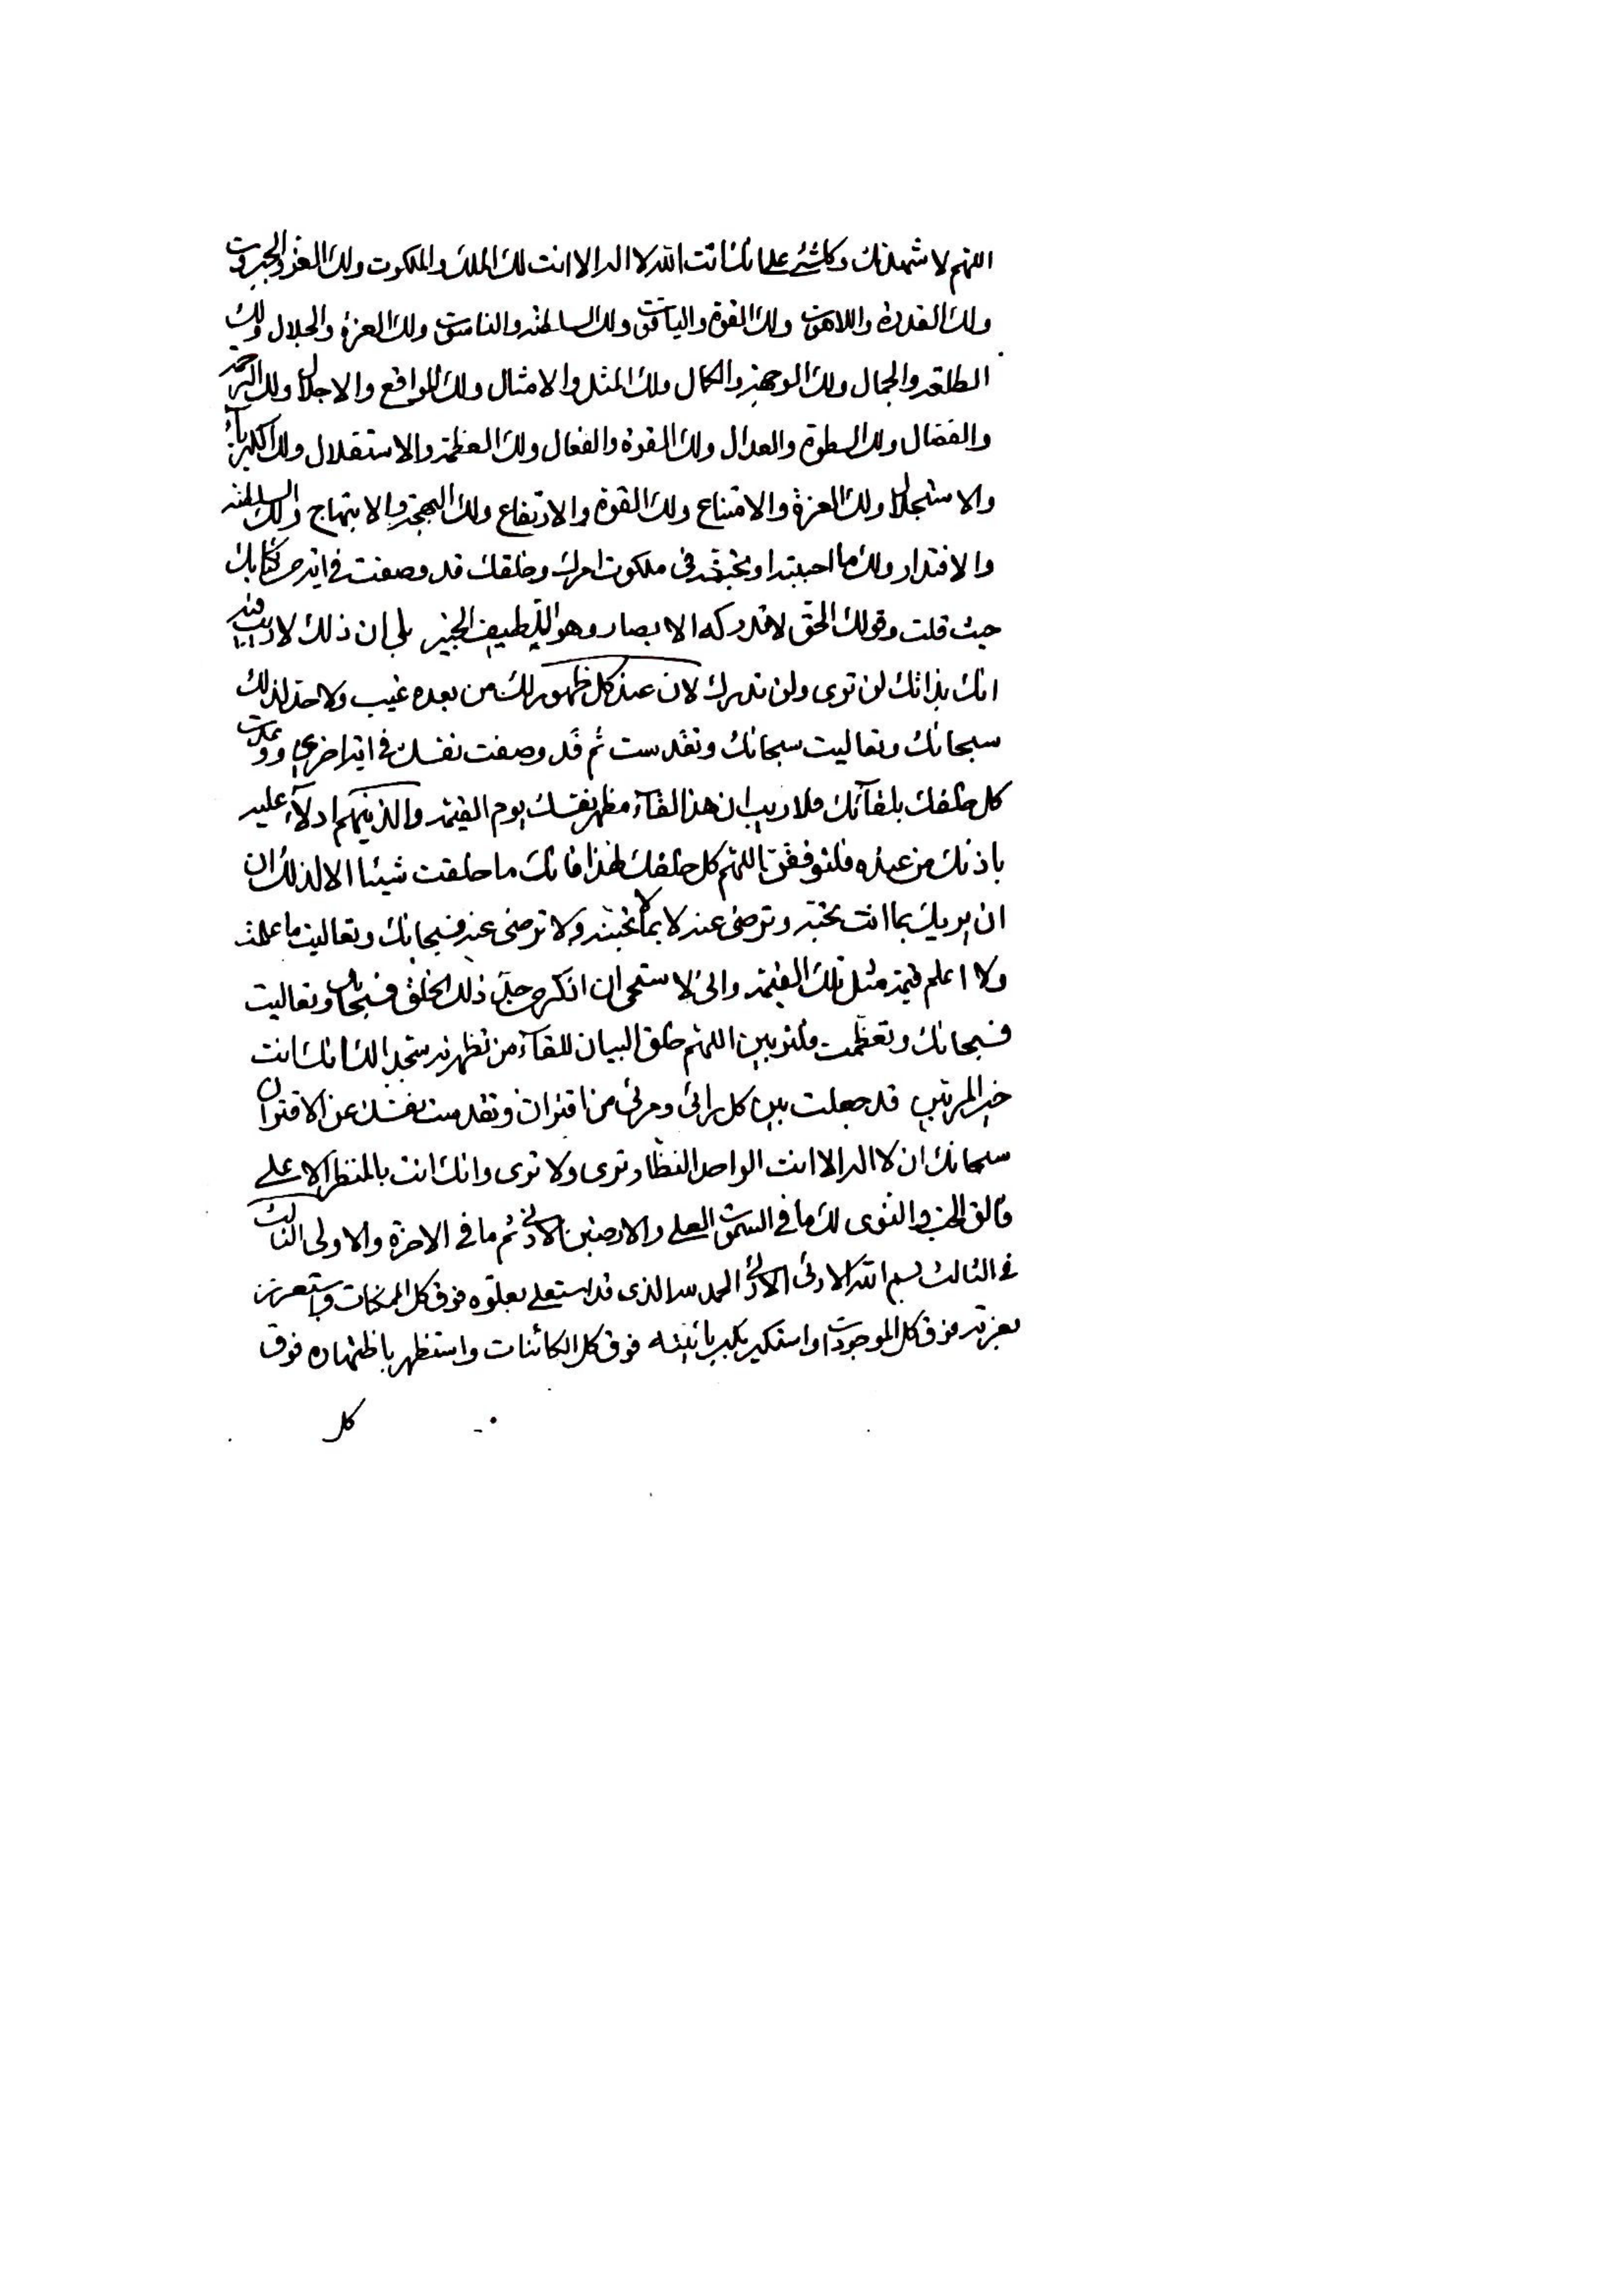 اللهم لاشهدنك وكلشئ على انك انت الله لا اله الا انت لك الملك والملكوت ولك العز والجبروت
ولك القدرة واللاهوت ولك القوة والياقوت ولك السلطنه والناسوت ولك العزة والجلال ولك
الطلعه والجمال ولك الوجهة والكمال ولك المثل والامثال ولك المواقع والاجلال ولك الرحمة
والفضال ولك السطوة والعدال ولك القوة والفعال ولك العظمة والاستقلال ولك الكبرياء
والاستجلال ولك العزة والامتناع ولك القوة والارتفاع ولك البهجة والابتهاج ولك السلطنه
والاقتدار ولك ما احببته او تحبنه في ملكوت امرك وخلقك قد وصفت في اية من كتابك
حيث قلت وقولك الحق لا تدركه الابصار وهو اللطيف الخبير بلى ان ذلك لا ريب فيه
انك بذاتك لن ترى ولن تدرك لان عند كل ظهور لك من بعده غيب ولا حد لذلك
سبحانك وتعاليت سبحانك وتقدست ثم قد وصفت نفسك في اية اخرى ووعدت
كل خلقك بلقآئك فلا ريب ان هذا لقآء مظهر نفسك يوم القيمة والذينهم ادلآء عليه
باذنك من عنده فلتوفقن اللهم كل خلقك لهذا فانك ما خلقت شيئا الا لذلك ان
ان يريك بما انت تحبه وترضى عنه لا بما لا تحبنه ولا ترضى عنه فسبحانك وتعاليت ما علمت
ولا اعلم قيمة مثل تلك القيمة وانى لاستحى ان اذكر حين ذلك الخلق فسبحانك وتعاليت
فسبحانك وتعظمت فلتربين اللهم خلق البيان للقآء من تظهرنه ستجد الك انك انت
خير المربين قد جعلت بين كل رائى ومرئى من اقتران وتقدست نفسك عن الاقتران
سبحانك ان لا اله الا انت الواحد النظار ترى ولا ترى وانك انت بالمنظر الاعلى
فالق الحب والنوى لك ما في السموات العلى والارضين الادنى ثم ما في الاخرة والاولى الثالث
في الثالث بسم الله الادنى الادنى الحمد لله الذى قد استعلى بعلوه فوق كل الممكنات واستعزز
بعزته فوق كل الموجودات واستكبر بكبريائيته فوق كل الكائنات واستظهر باظتهاره فوق
كل